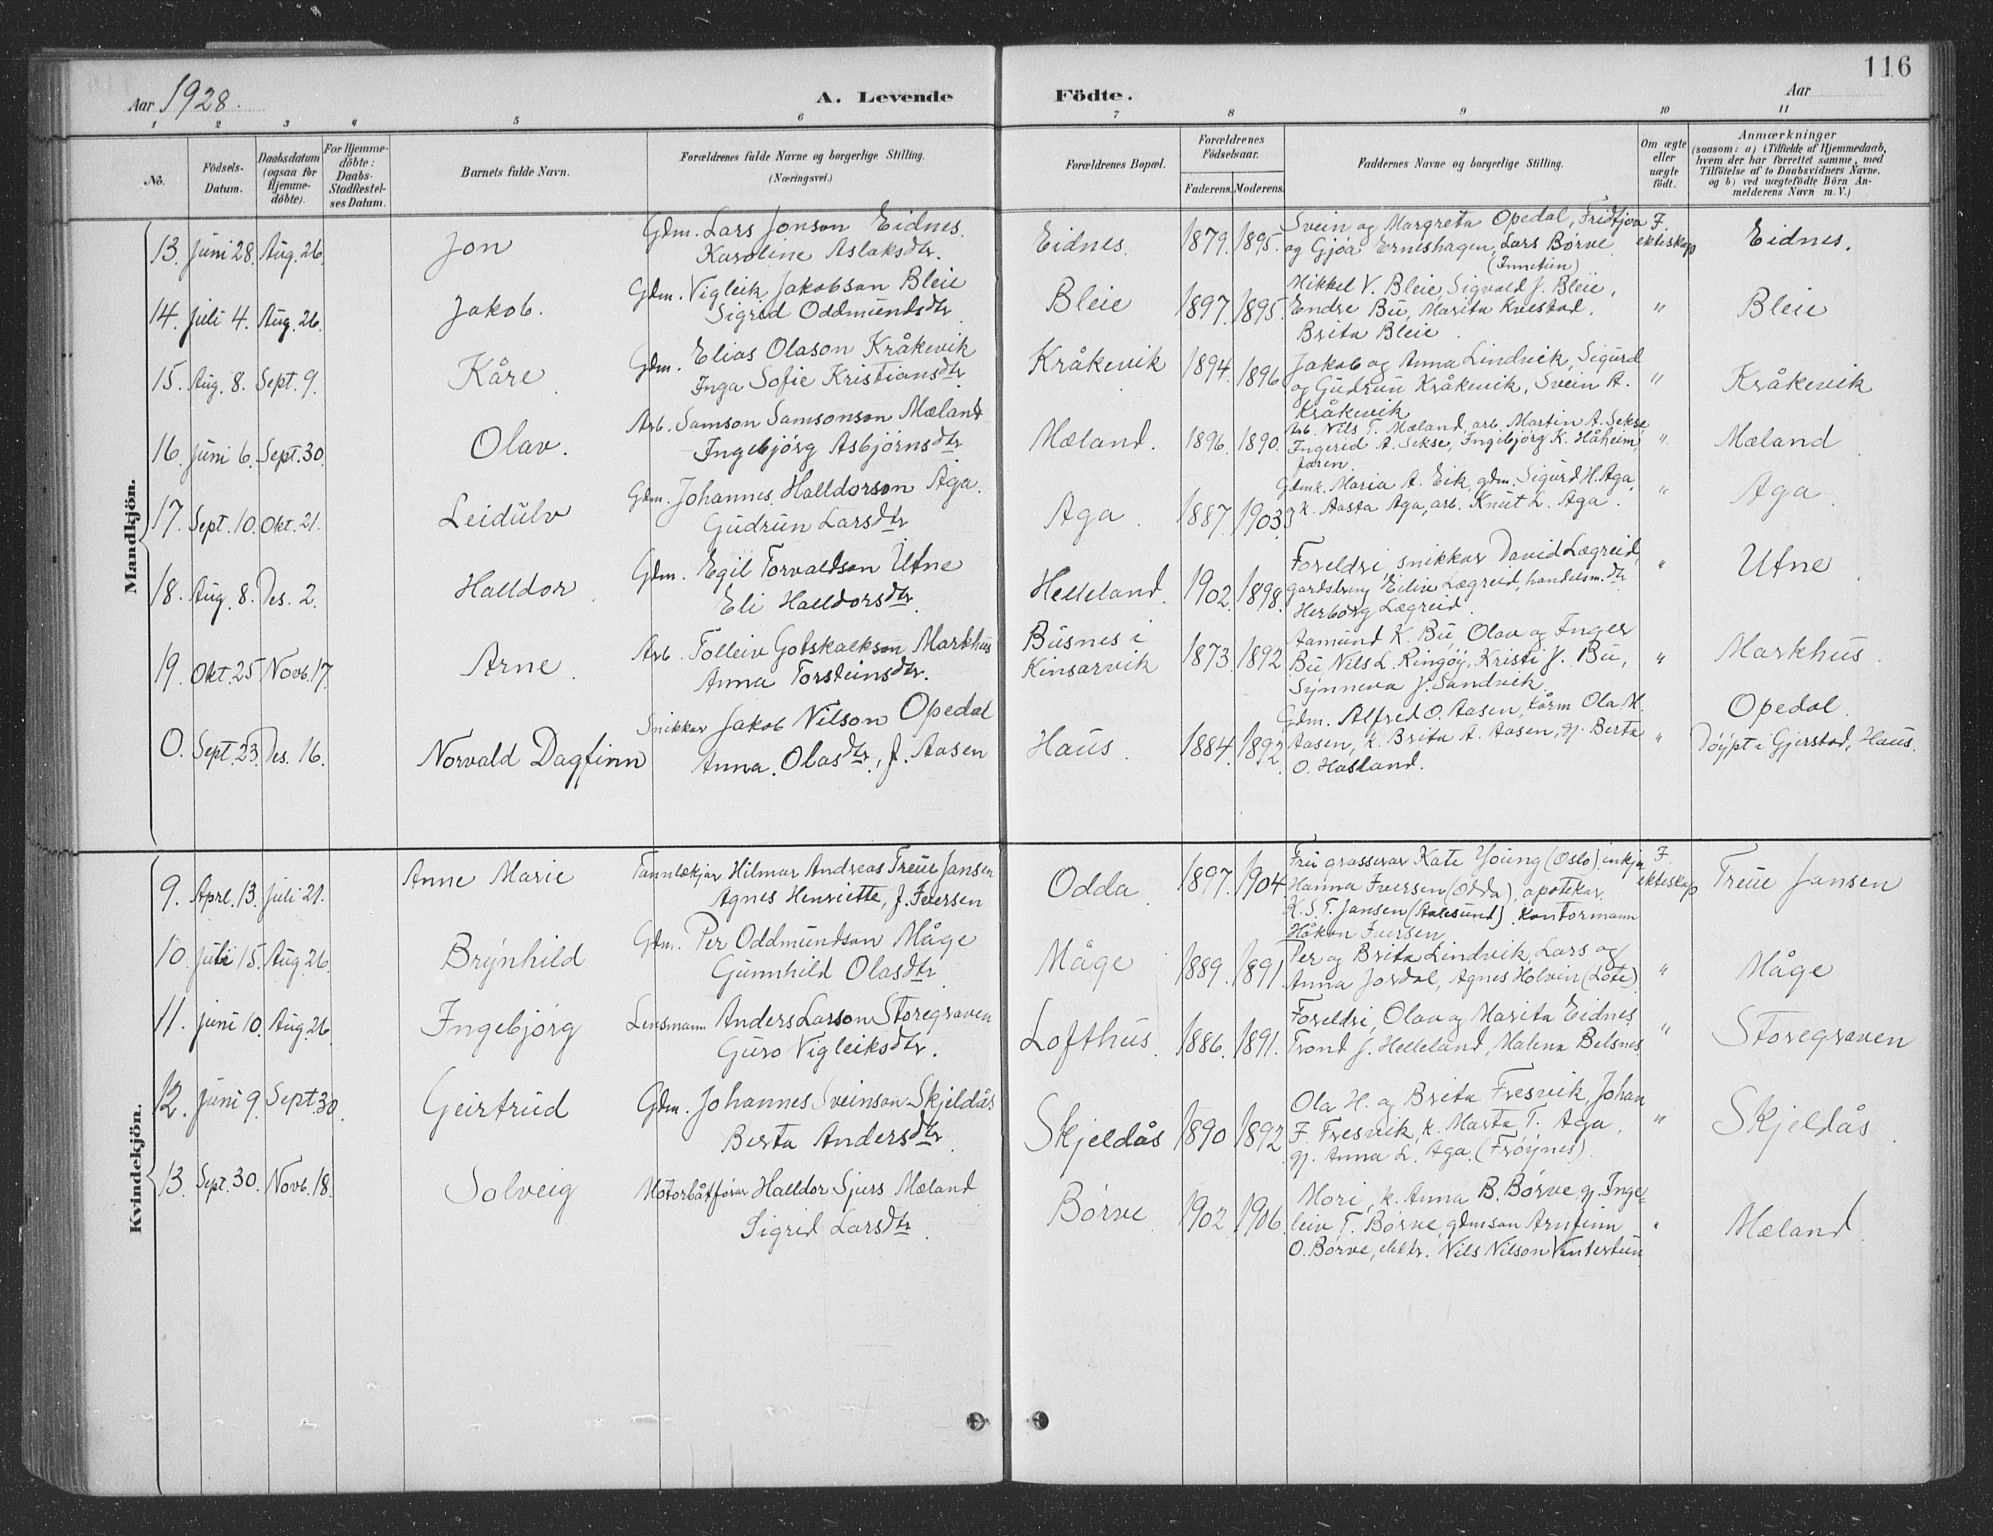 116
Aar 1928.
A. Levende Födte.
Aar
1 2 3 4 5 6 7 8 9 10 11
No.
Födsels-Datum.
Daabsdatum (ogsaa for Hjemme-döbte).
For Hjemme-döbte: Daabs-Stadfæstel-ses Datum.
Barnets fulde Navn.
Forældrenes fulde Navne og borgerlige Stilling.
(Næringsvei.)
Forældrenes Bopæl.
Forældrenes Födselsaar.
Faderens. Moderens.
Faddernes Navne og borgerlige Stilling.
Om ægte eller uægte födt.
Anmærkninger
(saasom: a) i Tilfælde af Hjemmedaab,
hvem der har forrettet samme, med
Tilföielse af to Daabsvidners Navne,
og b) ved uægtefödte Börn An-
melderens Navn m. V.)
Mandkjön.
13. Juni 28. Aug. 26. Jon
Gdm. Lars Jonson Eidnes.
Karoline Aslaksdtr.
Eidnes. 1879. 1895.
Svein og Margreta Opedal, Fridtjov
og Gjøa Erneshagen, Lars Børve
(Innetun)
F. ekteskap
Eidnes.
14. Juli 4. Aug. 26. Jakob.
Gdm. Vigleik Jakobson Bleie
Sigrid Oddmundsdtr.
Bleie 1897. 1895.
Mikkel V. Bleie, Sigvald J. Bleie,
Endre Bu, Marita Kvestad,
Brita Bleie.
" Bleie
15. Aug. 8. Sept. 9. Kåre
Gdm. Elias Olason Kråkevik
Inga Sofie Kristiansdtr.
Kråkevik 1894. 1896
Jakob og Anna Lindvik, Sigurd
og Gudrun Kråkevik, Svein A.
Kråkevik
" Kråkevik
16. Juni 6. Sept. 30. Olav.
Arb. Samson Samsonson Mæland
Ingebjørg Asbjørnsdtr
Mæland. 1896. 1890.
Arb. Nils T. Mæland, arb. Martin A. Sekse
Ingerid A. Sekse, Ingebjørg K. Håheim,
Jæren.
" Mæland
17. Sept. 10. Okt. 21. Leidulv
Gdm. Johannes Halldorson Aga.
Gudrun Larsdtr
Aga. 1887. 1903.
Gdmk. Maria A. Eik, gdm. Sigurd H. Aga,
k. Aasta Aga, arb. Knut L. Aga.
" Aga.
18. Aug. 8. Des. 2. Halldor
Gdm. Egil Torvaldson Utne
Eli Halldorsdtr
Helleland. 1902. 1898.
Foreldri, snikkar David Lægreid,
gardsbrug. Eiliv Lægreid, handelsm. dtr
Herborg Lægreid.
" Utne
19. Okt. 25 Novb. 17. Arne
Arb. Tolleiv Gotskalkson Markhus
Anna Torsteinsdtr.
Busnes i
Kinsarvik 1873. 1892
Aamund K. Bu, Olav og Inger
Bu, Nils L. Ringøy, Kristi J. Bu,
Synneva J. Sandvik.
" Markhus.
0. Sept. 23. Des. 16. Norvald Dagfinn
Snikkar Jakob Nilson Opedal
Anna. Olasdtr., f. Aasen
Haus. 1884. 1892.
Gdm. Alfred O. Aasen, kårm Ola H.
Aasen, k. Brita A. Aasen, gj. Berta
O. Hasland.
" Opedal.
Døypt i Gjerstad, Haus.
Kvindekjön.
9. Apr. 13. Juli 21. Anne Marie
Tannlækjar Hilmar Andreas Treue Jansen
Agnes Henriette, f. Iversen
Odda. 1897. 1904.
Fru grosserar Kate Young (Oslo), enkja
Hanna Iversen (Odda), apotekar
K. S. T. Jansen (Aalesund), kontormann
Håkon Iversen
F. ekteskap
Treue Jansen
10. Juli 15. Aug. 26. Brynhild
Gdm. Per Oddmundson Måge
Gunnhild Olasdtr.
Måge 1889. 1891.
Per og Brita Lindvik, Lars og
Anna Jordal, Agnes Holven (Lote)
" Måge
11. Juni 10. Aug. 26. Ingebjørg
Lensmann Anders Larson Storegraven
Guro Vigleiksdtr.
Lofthus. 1886. 1891.
Foreldri, Olav og Marita Eidnes
Trond J. Helleland, Malena Belsnes
" Storegraven
12. Juni 9. Sept 30. Geirtrud
Gdm. Johannes Sveinson Skjeldås
Berta Andersdtr.
Skjeldås 1890 1892
Ola H. og Brita Fresvik, Johan
F. Fresvik, k. Marta T. Aga,
gj. Anna L. Aga. (Frøynes).
" Skjeldås.
13. Sept. 30. Novb. 18. Solveig
Motorbåtførar Halldor Sjurs. Mæland
Sigrid Larsdtr.
Børve 1902. 1906.
Mori, k. Anna B. Børve, gj. Inge-
leiv T. Børve, gdmson Arnfinn
O. Børve, Nils Nilson Vintertun
" Mæland.